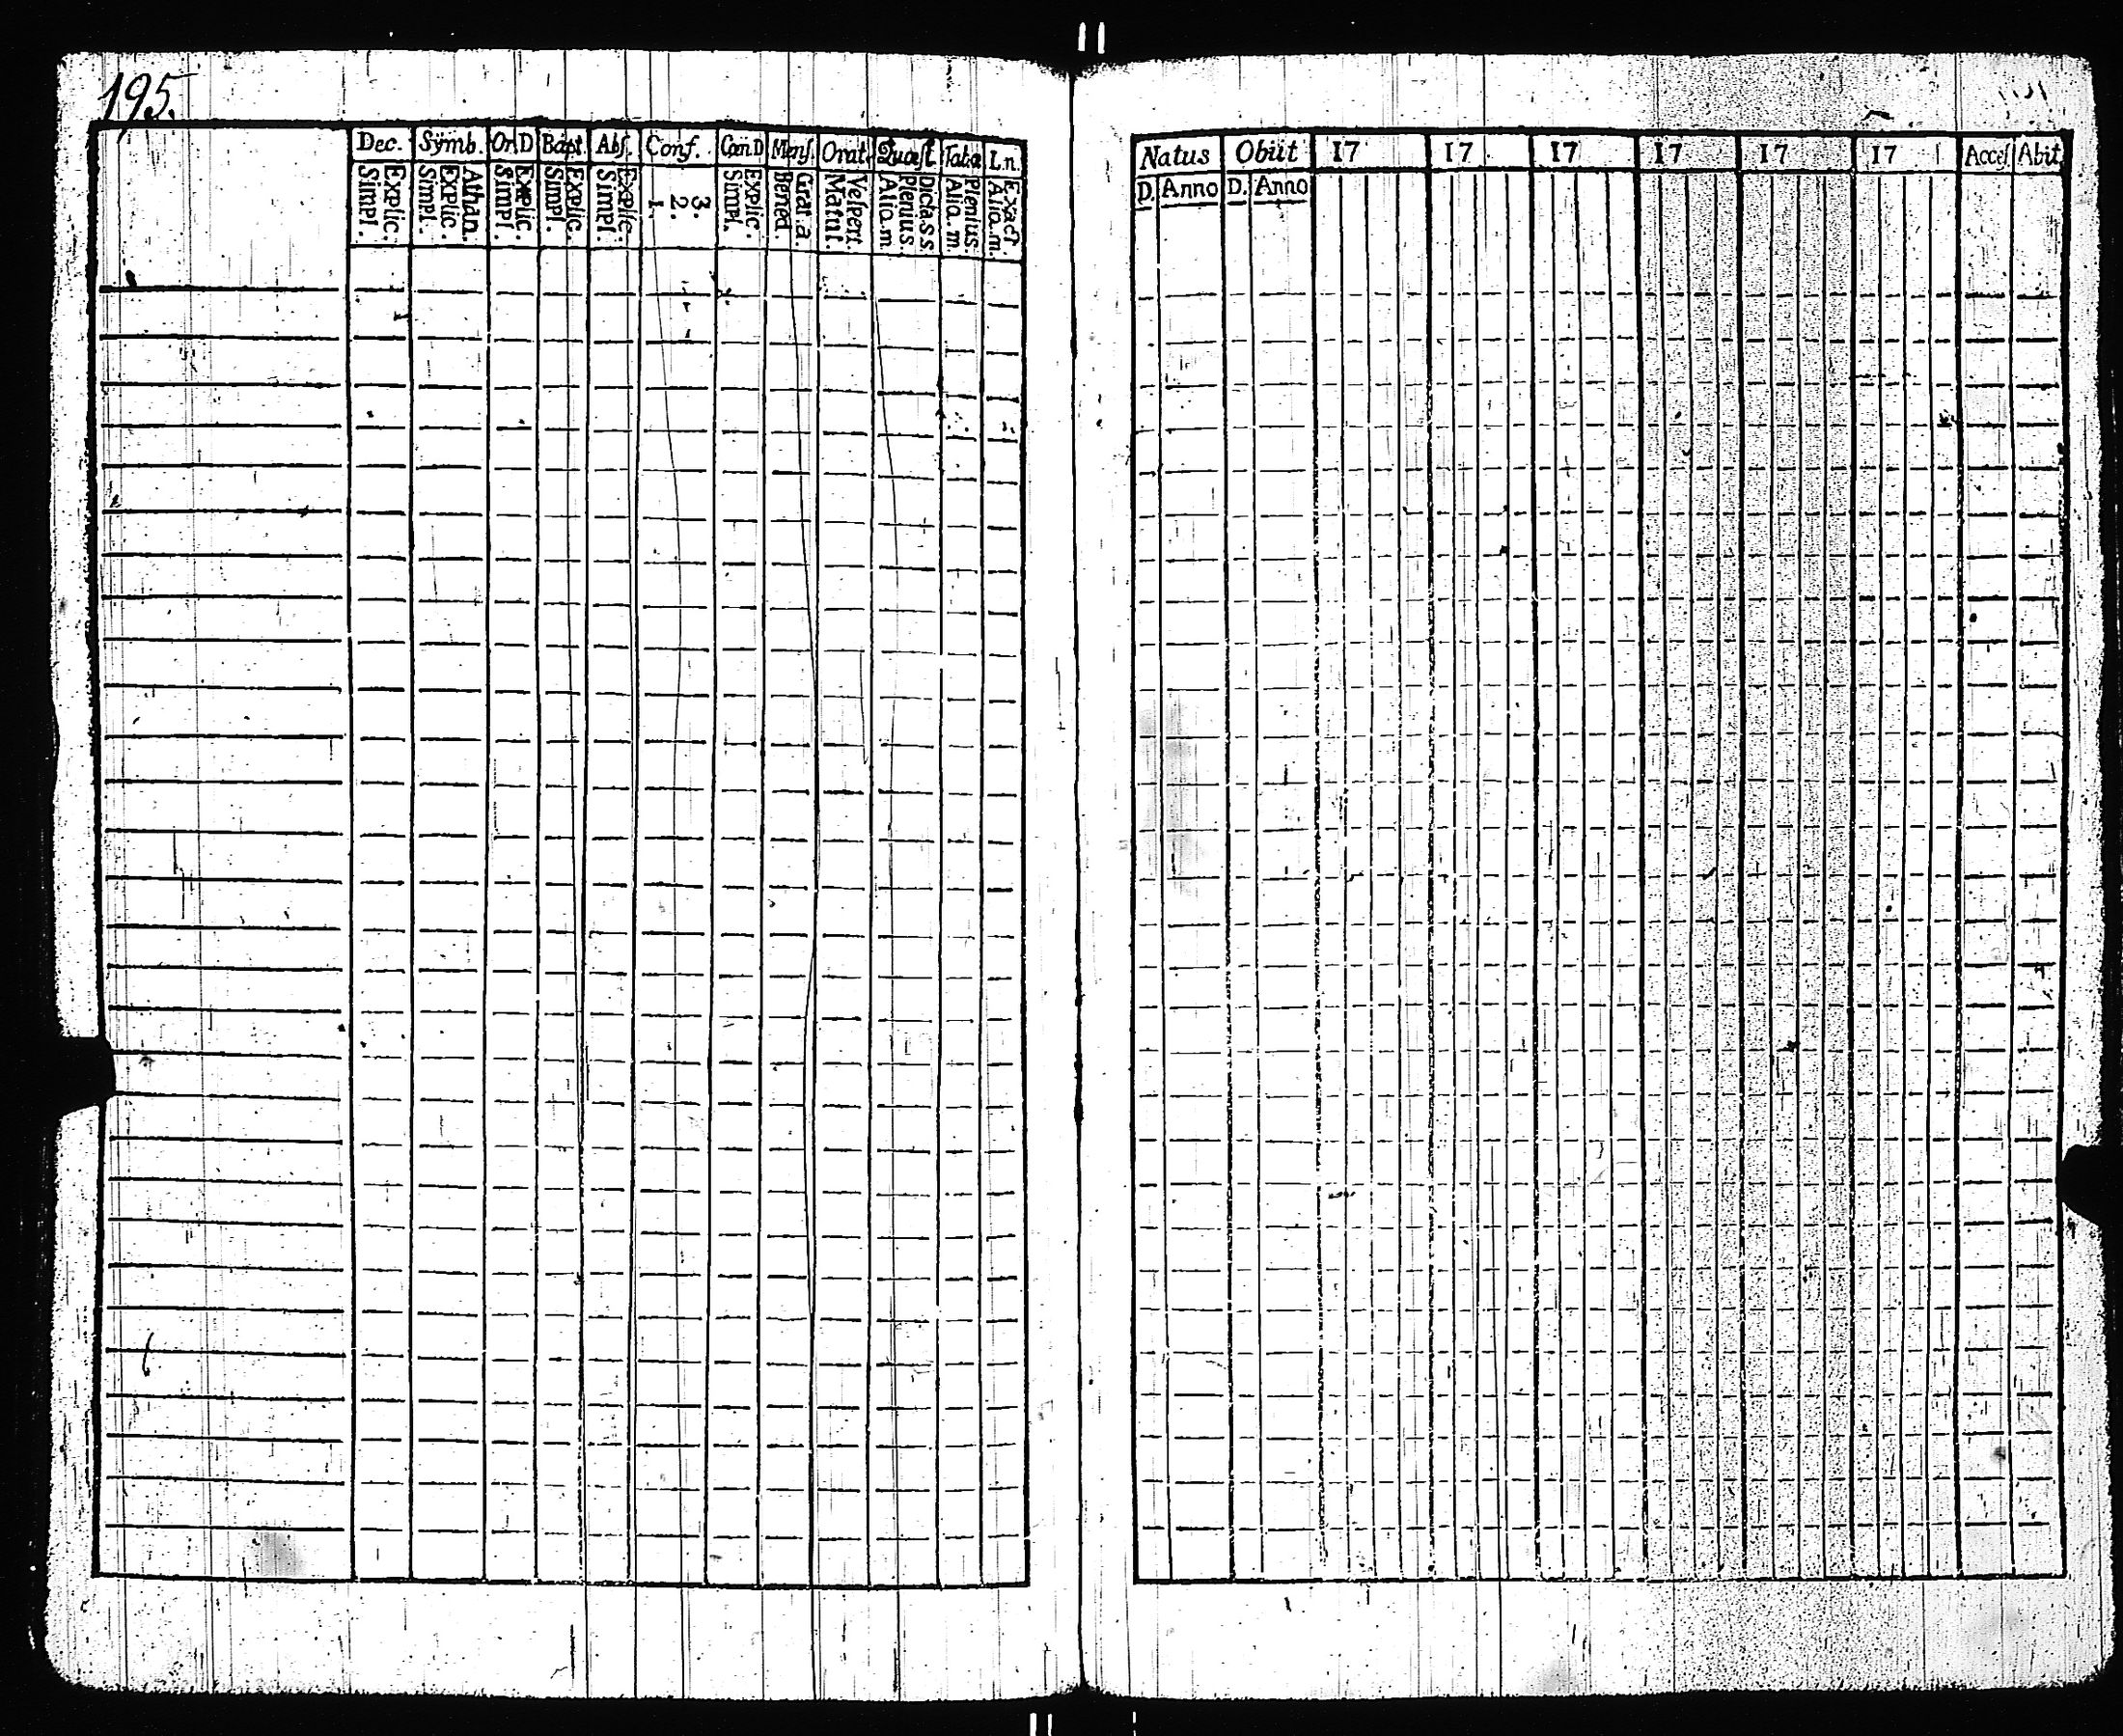 195.
Dec. Sÿmb. Or.D Bapt. Abſ. Conf. Cœn D Menſ. Orat. Quæſt. Tab.æ L.n.
Explic. Simpl. Athan. Explic. Simpl. Explic. Simpl. Explic. Simpl. Explic. Simpl. 3. 2. 1. Explic. Simpl. Grat. a. Bened. Veſpert. Matut. Dicta.s.s. Plenius. Aliq.m. Plenius. Aliq.m. Exact. Aliq.m.
Natus Obiit 17 17 17 17 17 17 Acceſ. Abit.
D. Anno D. Anno